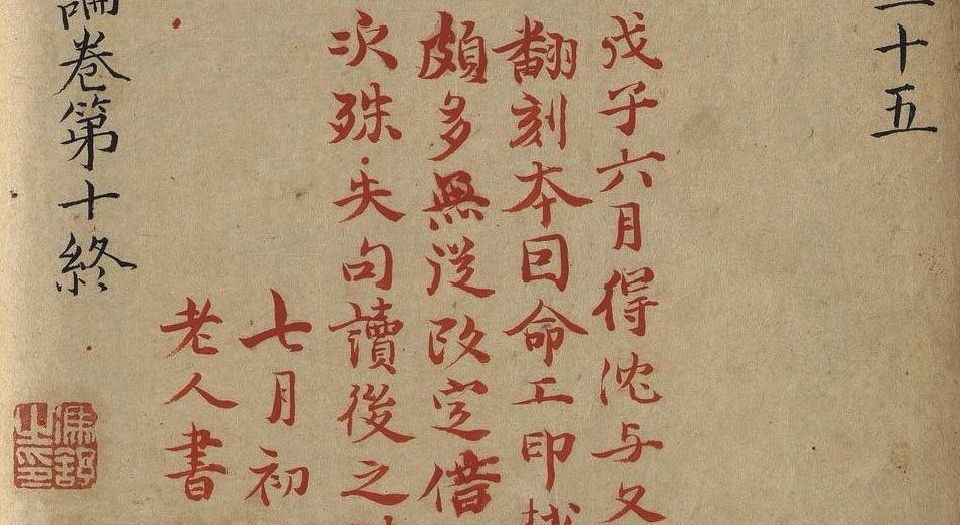 十五
戊子六月得沈与文
翻刻本囙命工印
頗多無從改定借
次殊失句讀後之
七月初
老人書
論卷第十終
馮舒之印